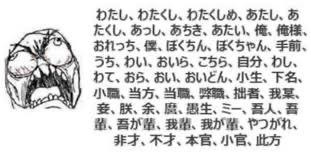 わたし、わたくし、わたくしめ、あたし、あ
たくし、あっし、あちき、あたい、俺、俺様、
おれっち、僕、ぼくちん、ぼくちゃん、手前、
うち、わい、おいら、こちら、自分、わし、
わて、おら、おい、おいどん、小生、下名、
小職、当方、当職、弊職、拙者、我某、
妾、朕、余、麿、愚生、ミー、吾人、吾
輩、吾が輩、我輩、我が輩、やつがれ、
非才、不才、本官、小官、此方